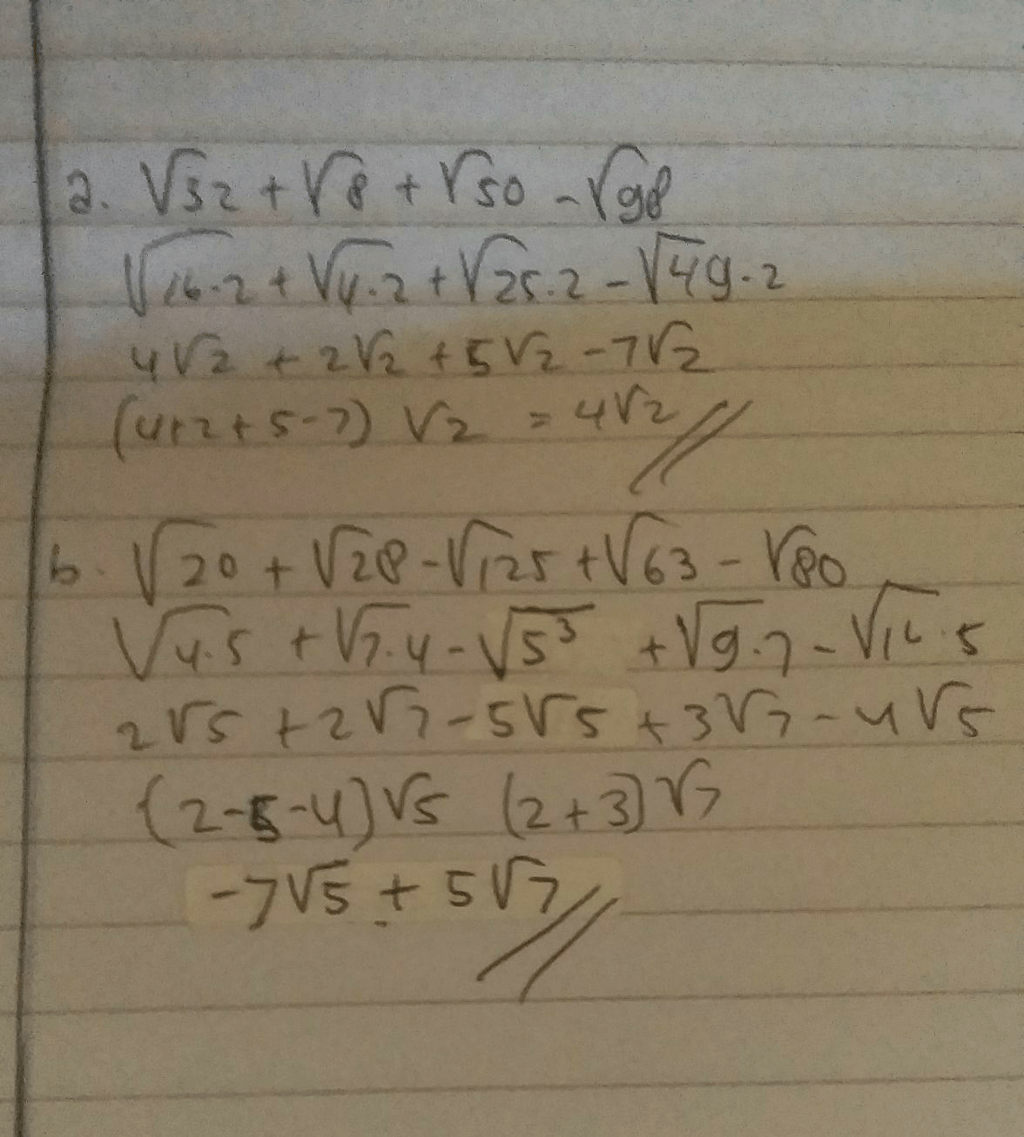 a. √32 + √8 + √50 - √98
√16.2 + √4.2 + √25.2 - √49.2
4√2 + 2√2 + 5√2 - 7√2
(4+2+5-7) √2 = 4√2 //
b. √20 + √28 - √125 + √63 - √80
√4.5 + √7.4 - √5³ + √9.7 - √16.5
2√5 + 2√7 - 5√5 + 3√7 - 4√5
(2-5-4)√5 (2+3)√7
-7√5 + 5√7 //